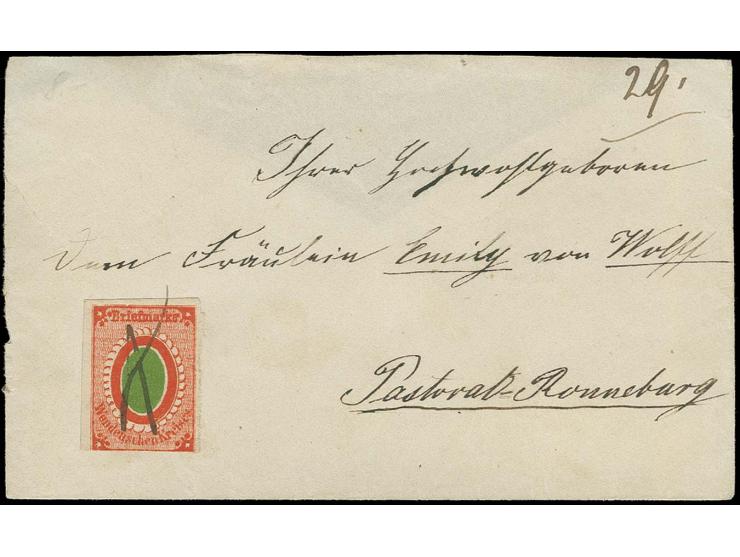 29.
Ihrer Hochwohlgeboren
Dem Fräulein Emily von Wolff
Briefmarke
Wendenschen Kreises
Pastorat-Ronneburg